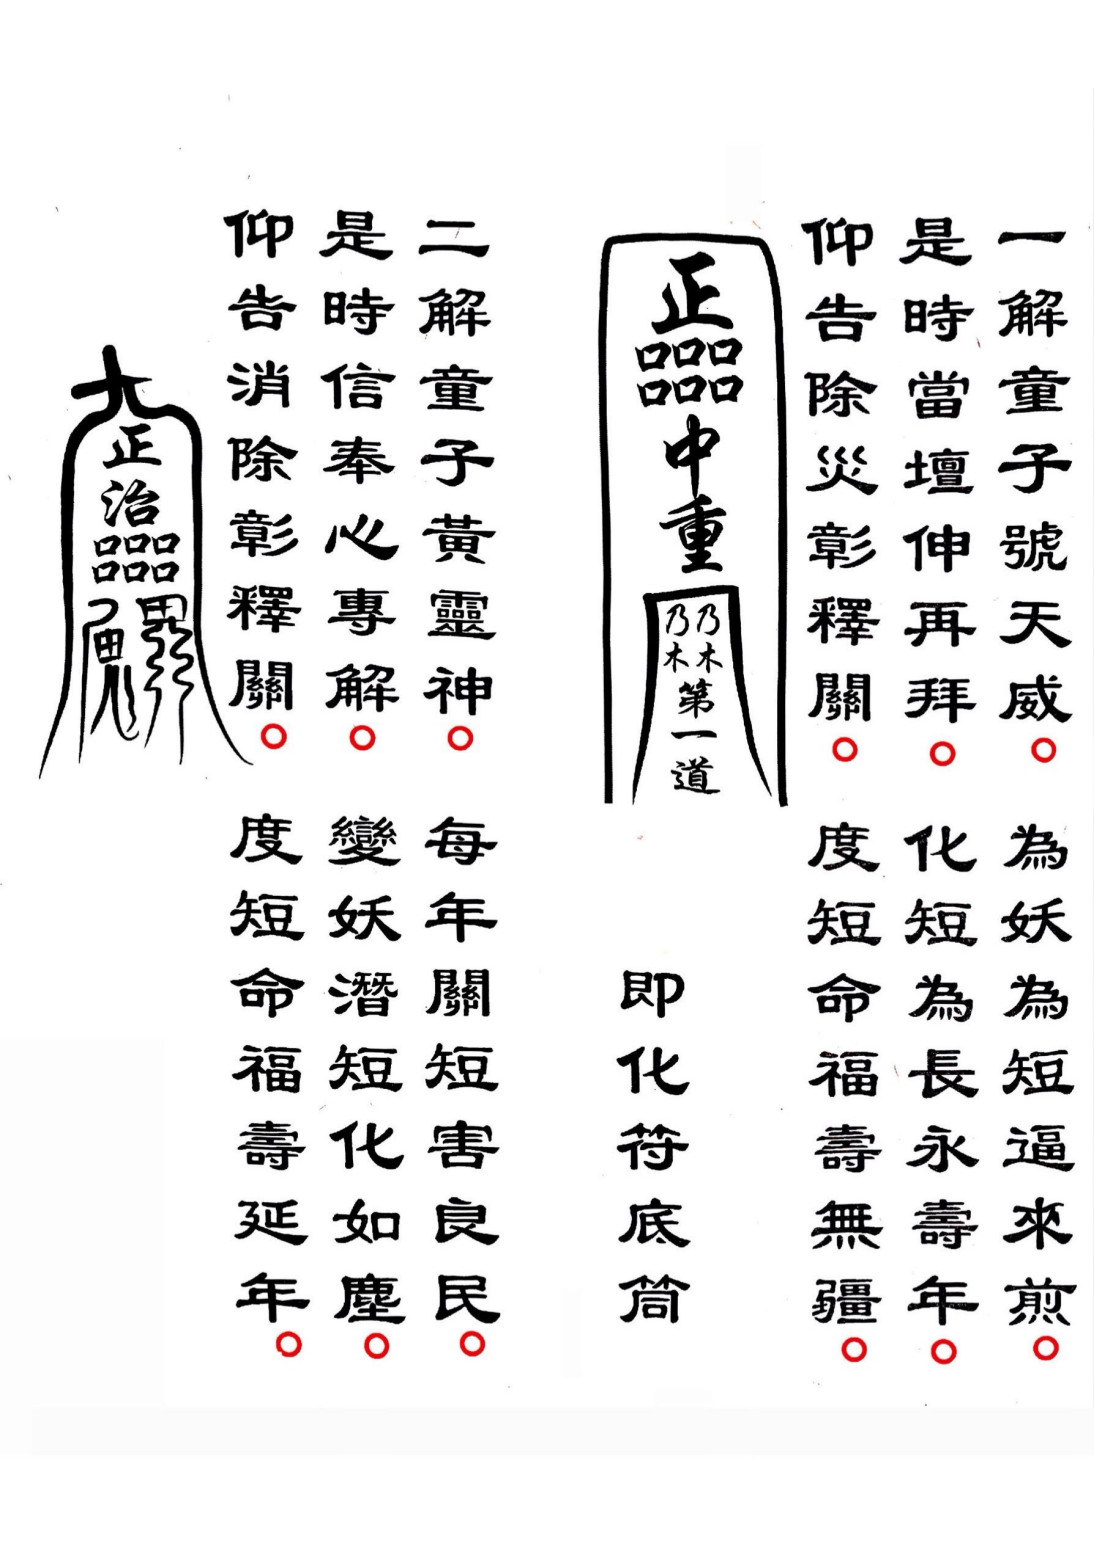 一解童子號天威○為妖為短逼來煎○
是時當壇伸再拜○化短為長永壽年○
仰告除災彰釋關○度短命福壽無疆○
正
口口口口口口
口口口口
中重
乃木
乃木
第一道
即化符底筒
二解童子黃靈神○每年關短害良民○
是時信奉心專解○變妖潛短化如塵○
仰告消除彰釋關○度短命福壽延年○
正治